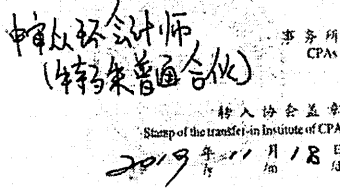 中审众环会计师
(特殊普通合伙)
事务所
CPAs
转入协会盖章
Stamp of the transfer-in Institute of CPA
2019年11月18日
/y /m /d